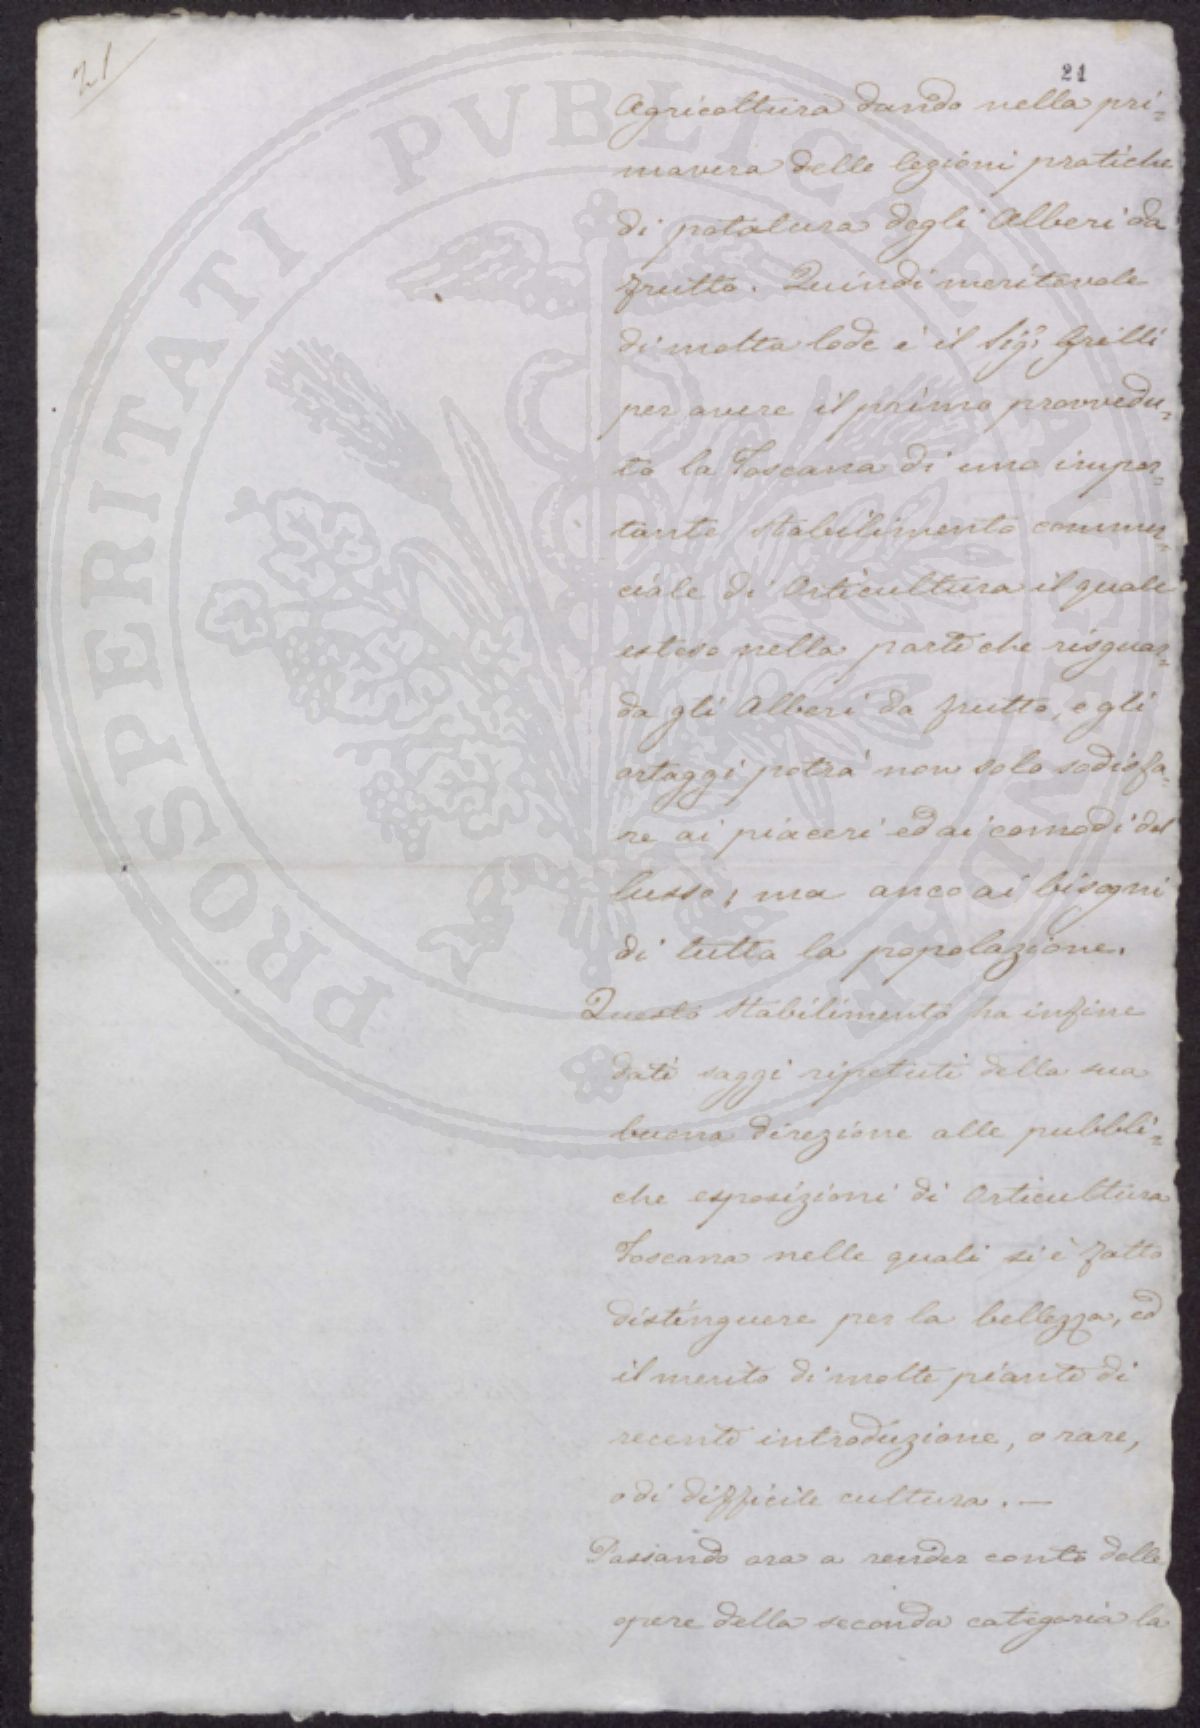 21
21
Agricoltura dando nella pri=
mavera delle lezioni pratiche
di potatura degli Alberi da
frutto. Quindi meritevole
di molta lode è il Sigr. Grilli
per avere il primo provvedu=
to la Toscana di uno impor=
tante stabilimento commer=
ciale di Orticultura il quale
esteso nella parte che risguar=
da gli Alberi da frutto, e gli
ortaggi potrà non solo sodisfa=
re ai piaceri ed ai comodi del
lusso; ma anco ai bisogni
di tutta la popolazione.
Questo stabilimento ha infine
dati saggi ripetuti della sua
buona direzione alle pubbli=
che esposizioni di Orticultura
Toscana nelle quali si è fatto
distinguere per la bellezza, ed
il merito di molte piante di
recente introduzione, o rare,
o di difficile cultura. —
Passando ora a render conto delle
opere della seconda categoria la
PROSPERITATI PVBLICAE AVGENDAE